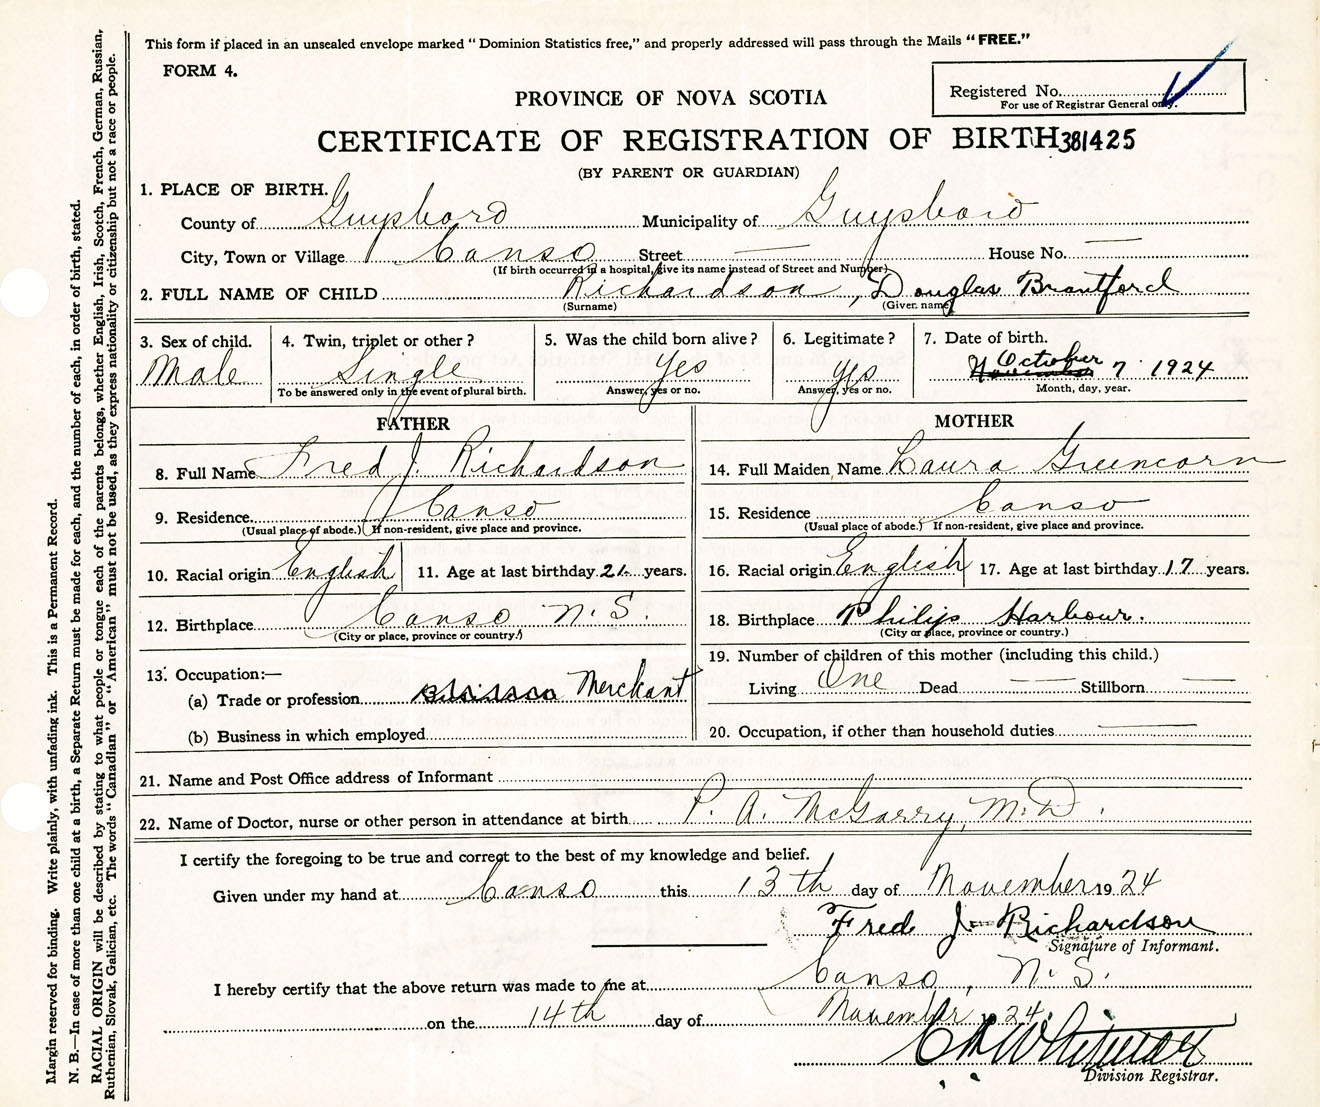 This form if placed in an unsealed envelope marked "Dominion Statistics free," and properly addressed will pass through the Mails "FREE."
FORM 4.
Registered No.
For use of Registrar General only.
PROVINCE OF NOVA SCOTIA
CERTIFICATE OF REGISTRATION OF BIRTH 381425
(BY PARENT OR GUARDIAN)
1. PLACE OF BIRTH.
County of Guysboro Municipality of Guysboro
City, Town or Village Canso Street — House No. —
(If birth occurred in a hospital, give its name instead of Street and Number)
2. FULL NAME OF CHILD Richardson, Douglas Brantford
(Surname) (Given name)
3. Sex of child. 4. Twin, triplet or other? 5. Was the child born alive? 6. Legitimate? 7. Date of birth.
Male Single Yes Yes October 7 1924
To be answered only in the event of plural birth. Answer, yes or no. Answer, yes or no. Month, day, year.
FATHER
8. Full Name Fred J. Richardson
9. Residence Canso
(Usual place of abode.) If non-resident, give place and province.
10. Racial origin English 11. Age at last birthday 21 years.
12. Birthplace Canso N.S.
(City or place, province or country.)
13. Occupation:—
(a) Trade or profession Merchant
(b) Business in which employed
MOTHER
14. Full Maiden Name Laura Greencorn
15. Residence Canso
(Usual place of abode.) If non-resident, give place and province.
16. Racial origin English 17. Age at last birthday 17 years.
18. Birthplace Philips Harbour.
(City or place, province or country.)
19. Number of children of this mother (including this child.)
Living One Dead — Stillborn —
20. Occupation, if other than household duties —
21. Name and Post Office address of Informant
22. Name of Doctor, nurse or other person in attendance at birth P. A. McGarry, M.D.
I certify the foregoing to be true and correct to the best of my knowledge and belief.
Given under my hand at Canso this 13th day of November 1924
Fred J. Richardson
Signature of Informant.
I hereby certify that the above return was made to me at Canso, N.S.
on the 14th day of November 1924.
Division Registrar.
Margin reserved for binding. Write plainly, with unfading ink. This is a Permanent Record.
N. B.—In case of more than one child at a birth, a Separate Return must be made for each, and the number of each, in order of birth, stated.
RACIAL ORIGIN will be described by stating to what people or tongue each of the parents belongs, whether English, Irish, Scotch, French, German, Russian,
Ruthenian, Slovak, Galician, etc. The words "Canadian" or "American" must not be used, as they express nationality or citizenship but not a race or people.